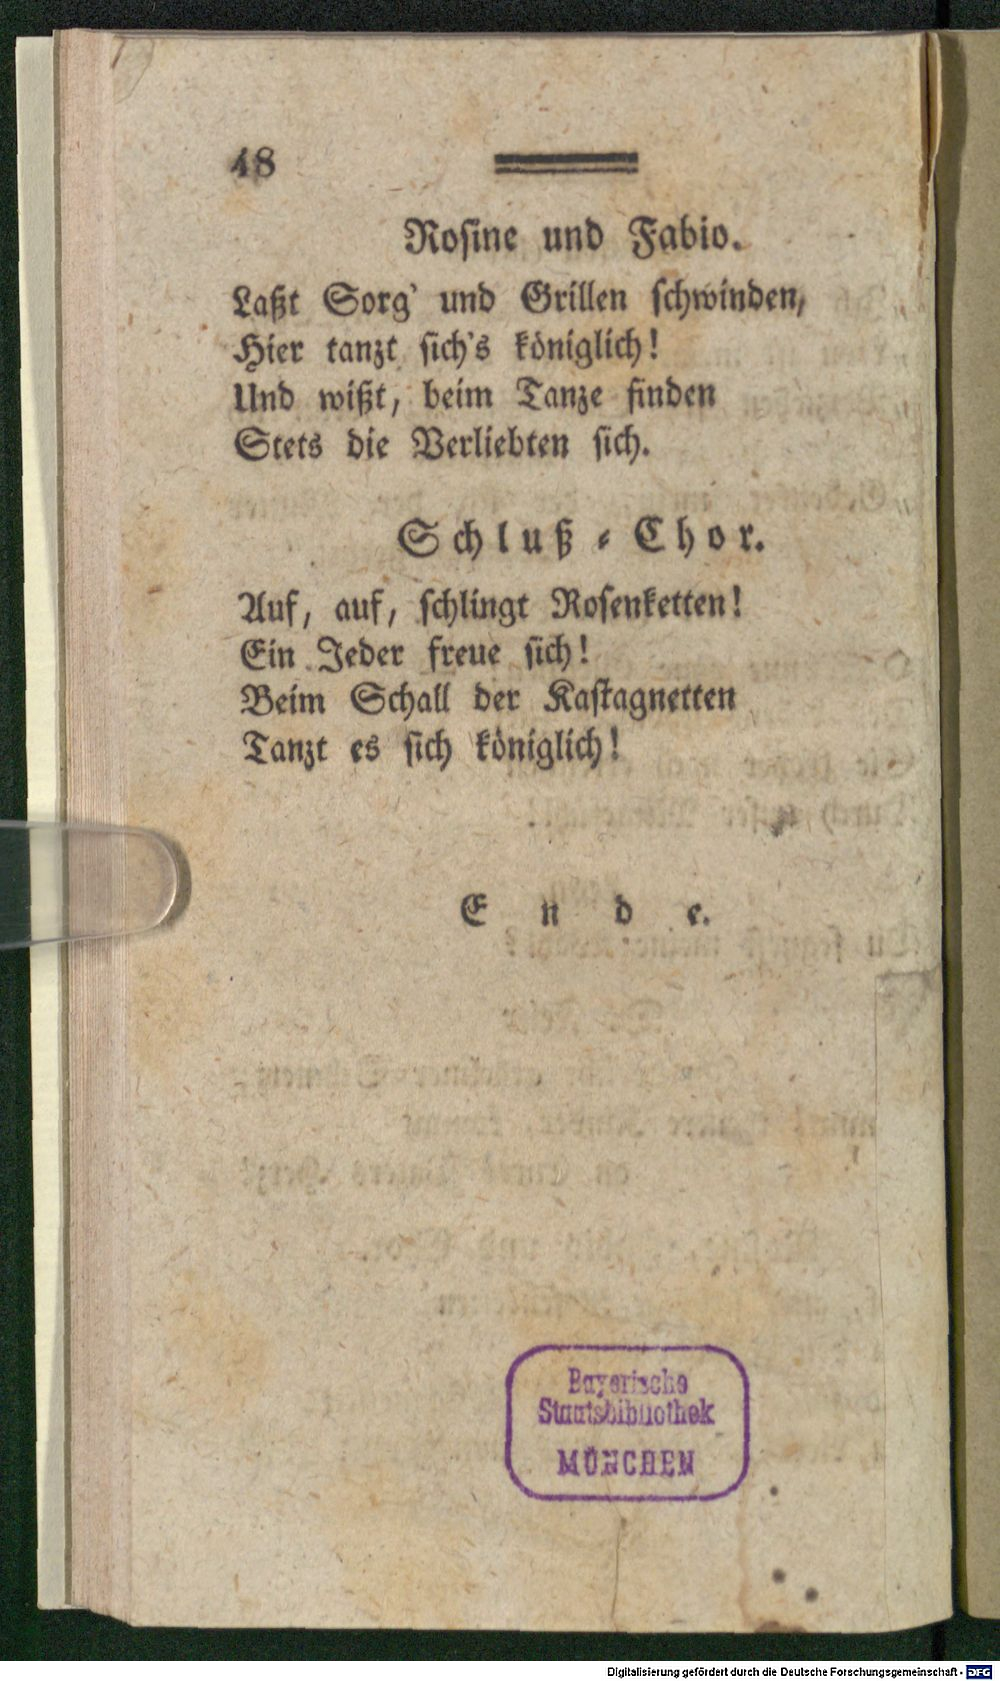 48
Rosine und Fabio.
Laßt Sorg' und Grillen schwinden,
Hier tanzt sich's königlich!
Und wißt, beim Tanze finden
Stets die Verliebten sich.
Schluß-Chor.
Auf, auf, schlingt Rosenketten!
Ein Jeder freue sich!
Beim Schall der Kastagnetten
Tanzt es sich königlich!
Ende.
Bayerische
Staatsbibliothek
MÜNCHEN
Digitalisierung gefördert durch die Deutsche Forschungsgemeinschaft - DFG